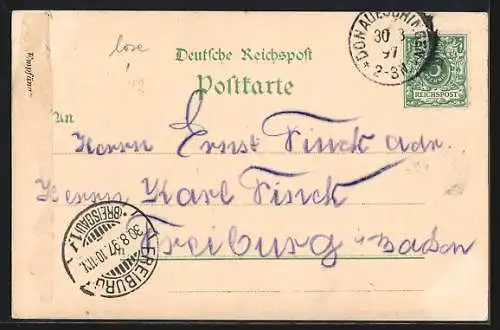 lose
Deutsche Reichspost
Postkarte
DONAUESCHINGEN
30 8
97
2-3N
REICHSPOST
An
Herrn Ernst Finck adr.
Herrn Karl Finck
Freiburg i. Baden
FREIBURG
30.8.97.10-11V.
* (BREISGAU) 1 *